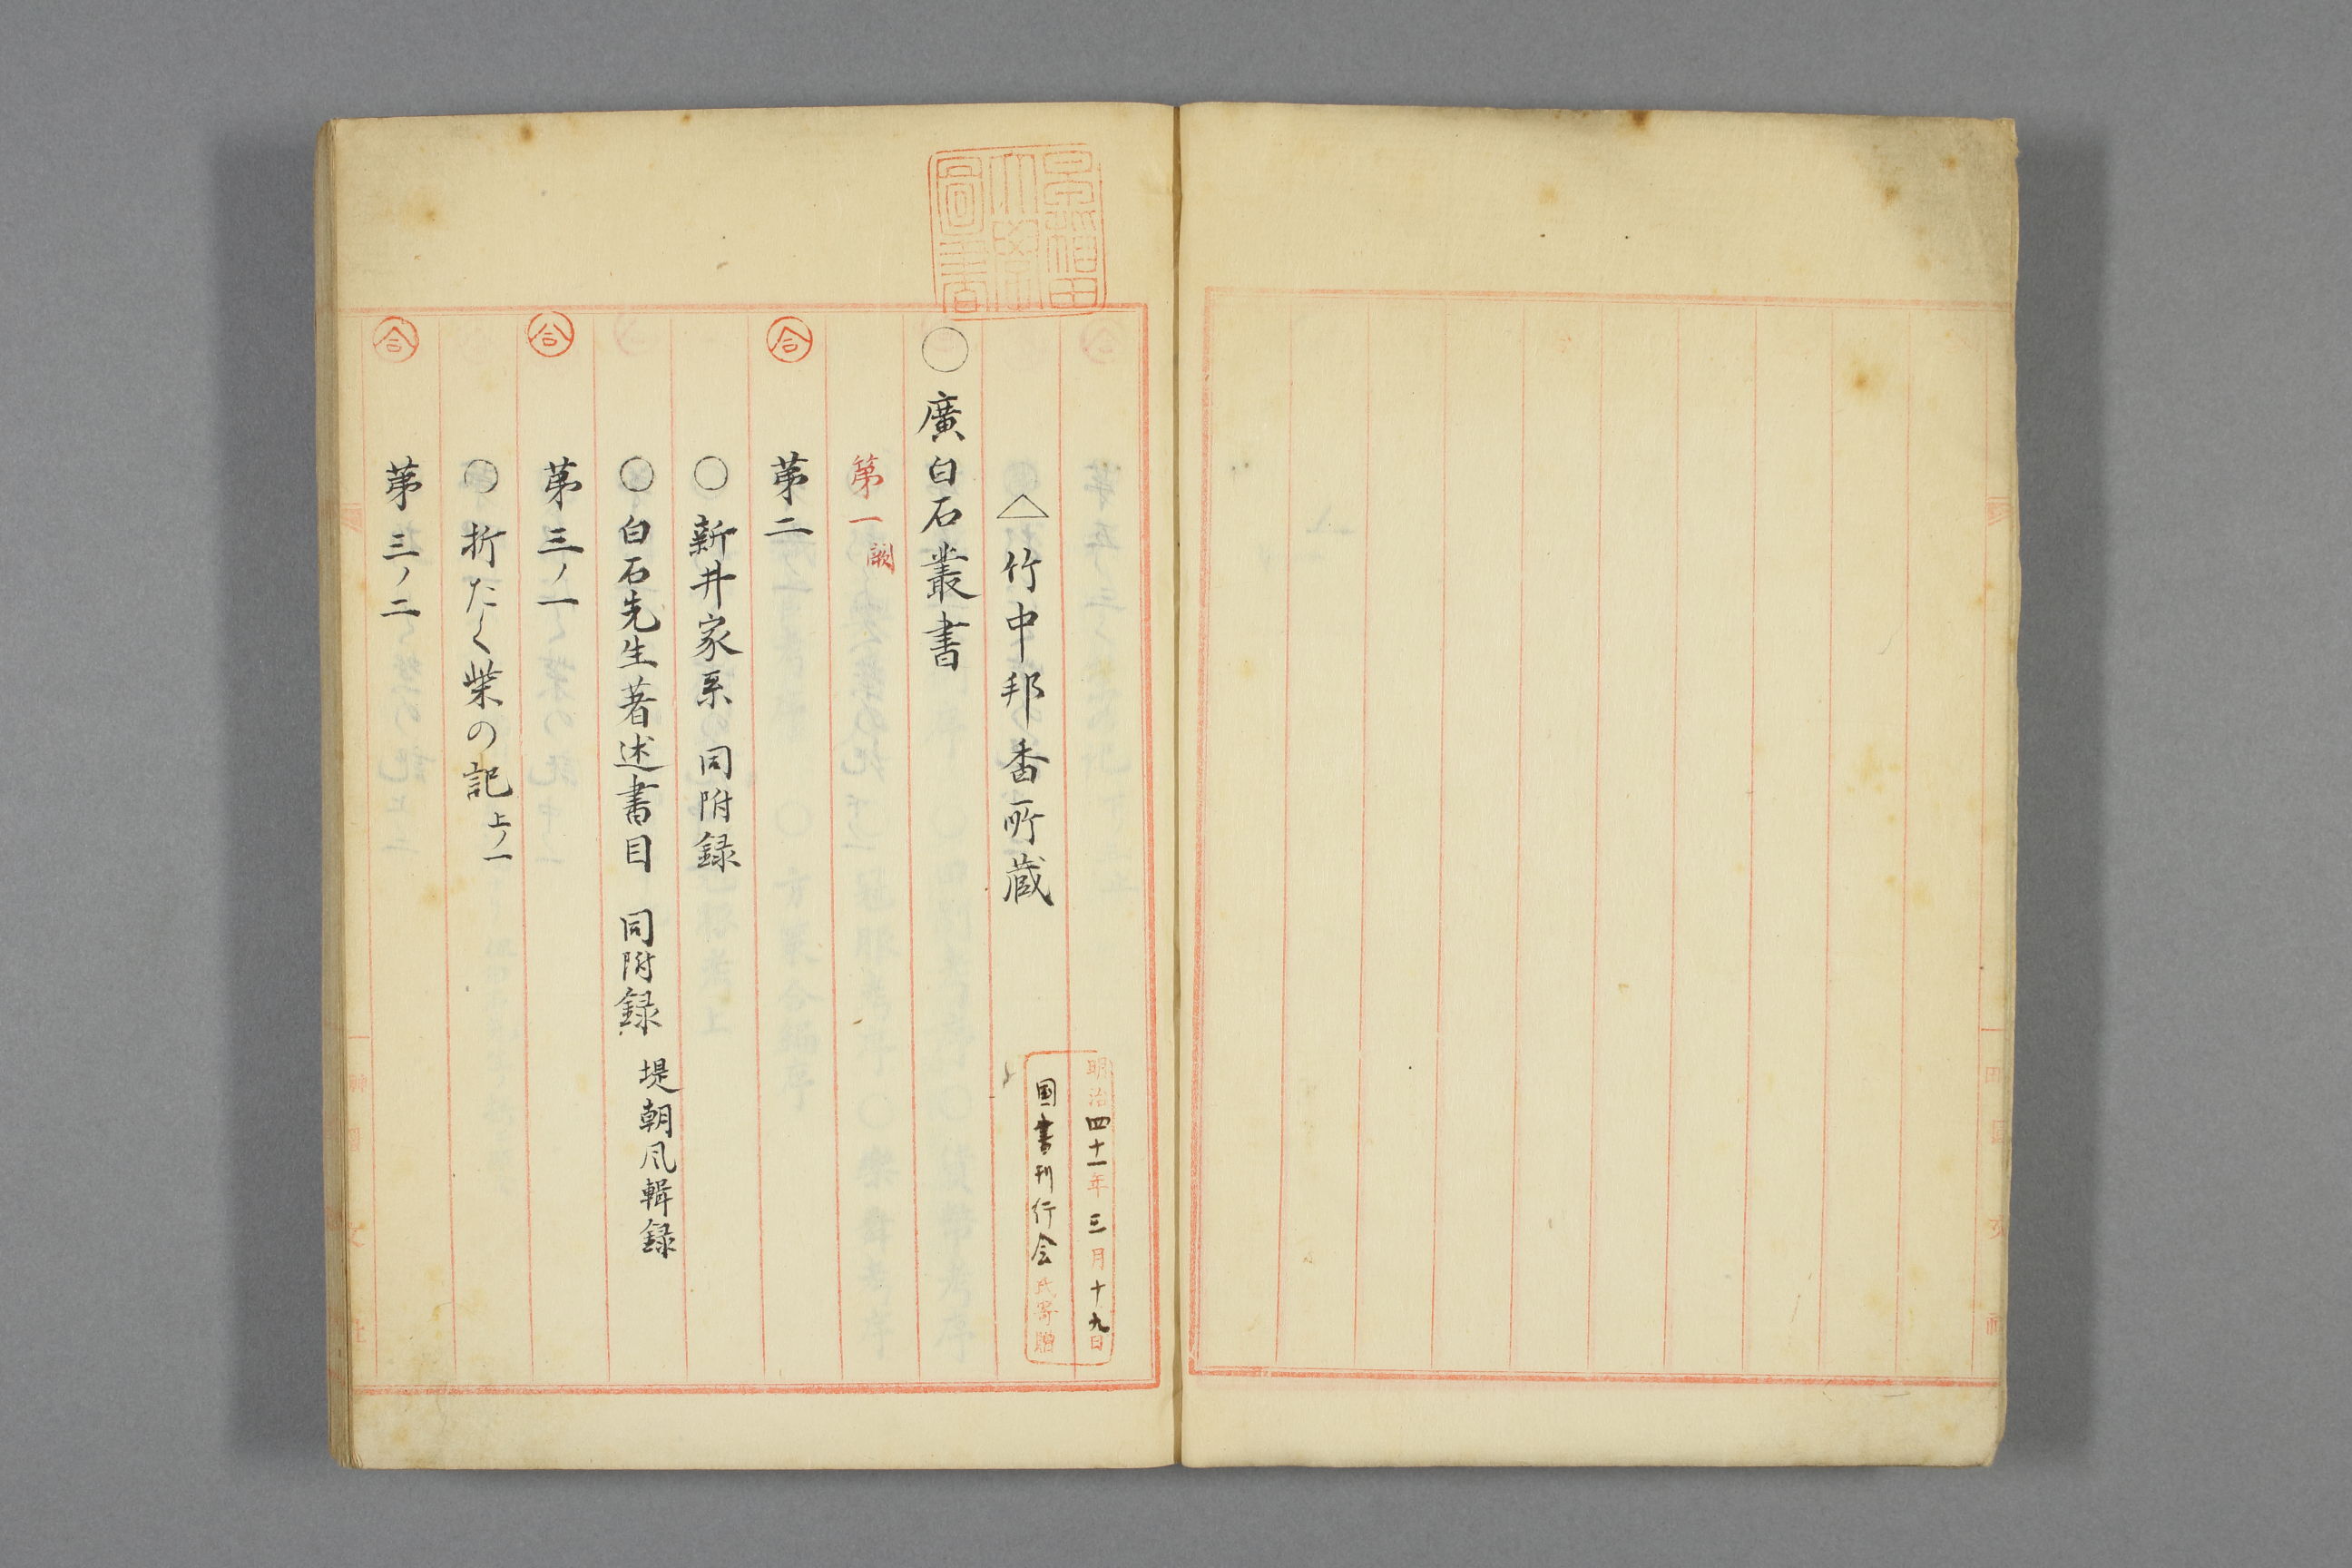 早稲田
大學
圖書
明治四十一年三月十九日
国書刊行会氏寄贈
△竹中邦香所蔵
○廣白石叢書
第一闕
㊂合
第二
○新井家系 同附録
○白石先生著述書目 同附録 堤朝風輯録
合
第三ノ一
○折たく柴の記上ノ一
合
第三ノ二